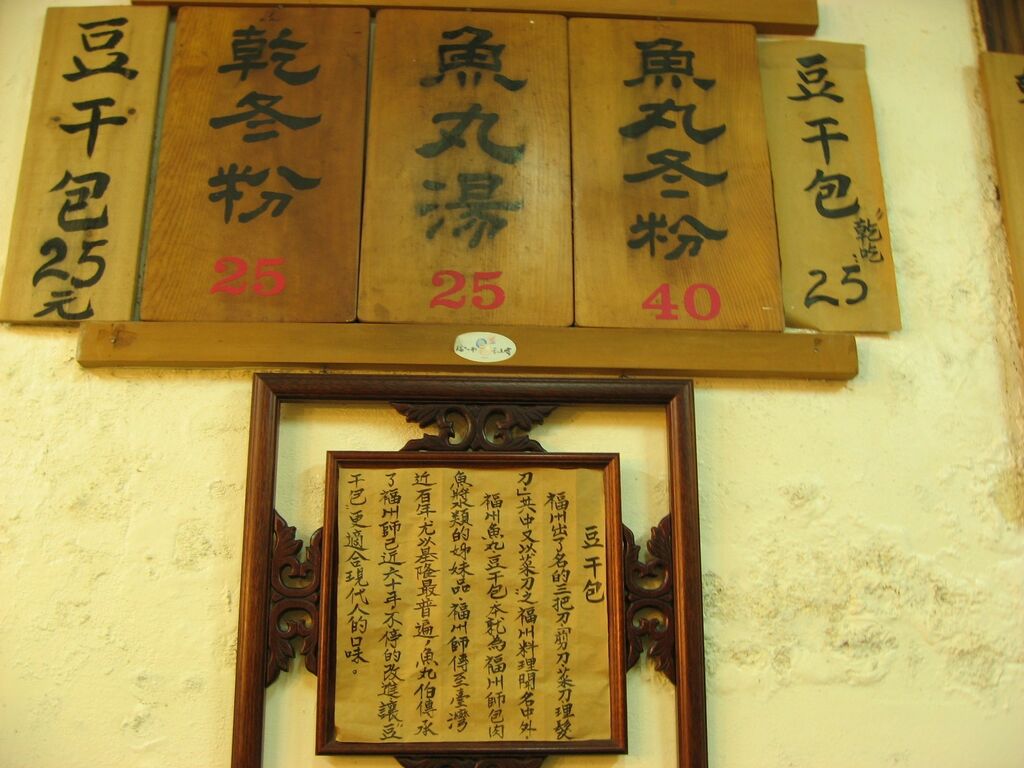 豆干包25元
乾冬粉
25
魚丸湯
25
魚丸冬粉
40
豆干包
乾吃
25
豆干包
福州出了名的三把刀,剪刀菜刀理髮
刀」其中又以菜刀之福州料理聞名中外.
福州魚丸豆干包本就為福州師包肉
魚漿類的姊妹品.福州師傅至臺灣
近百年尤以基隆最普遍,魚丸伯傳承
了福州師已近六十年,不停的改進讓豆
干包更適合現代人的口味。